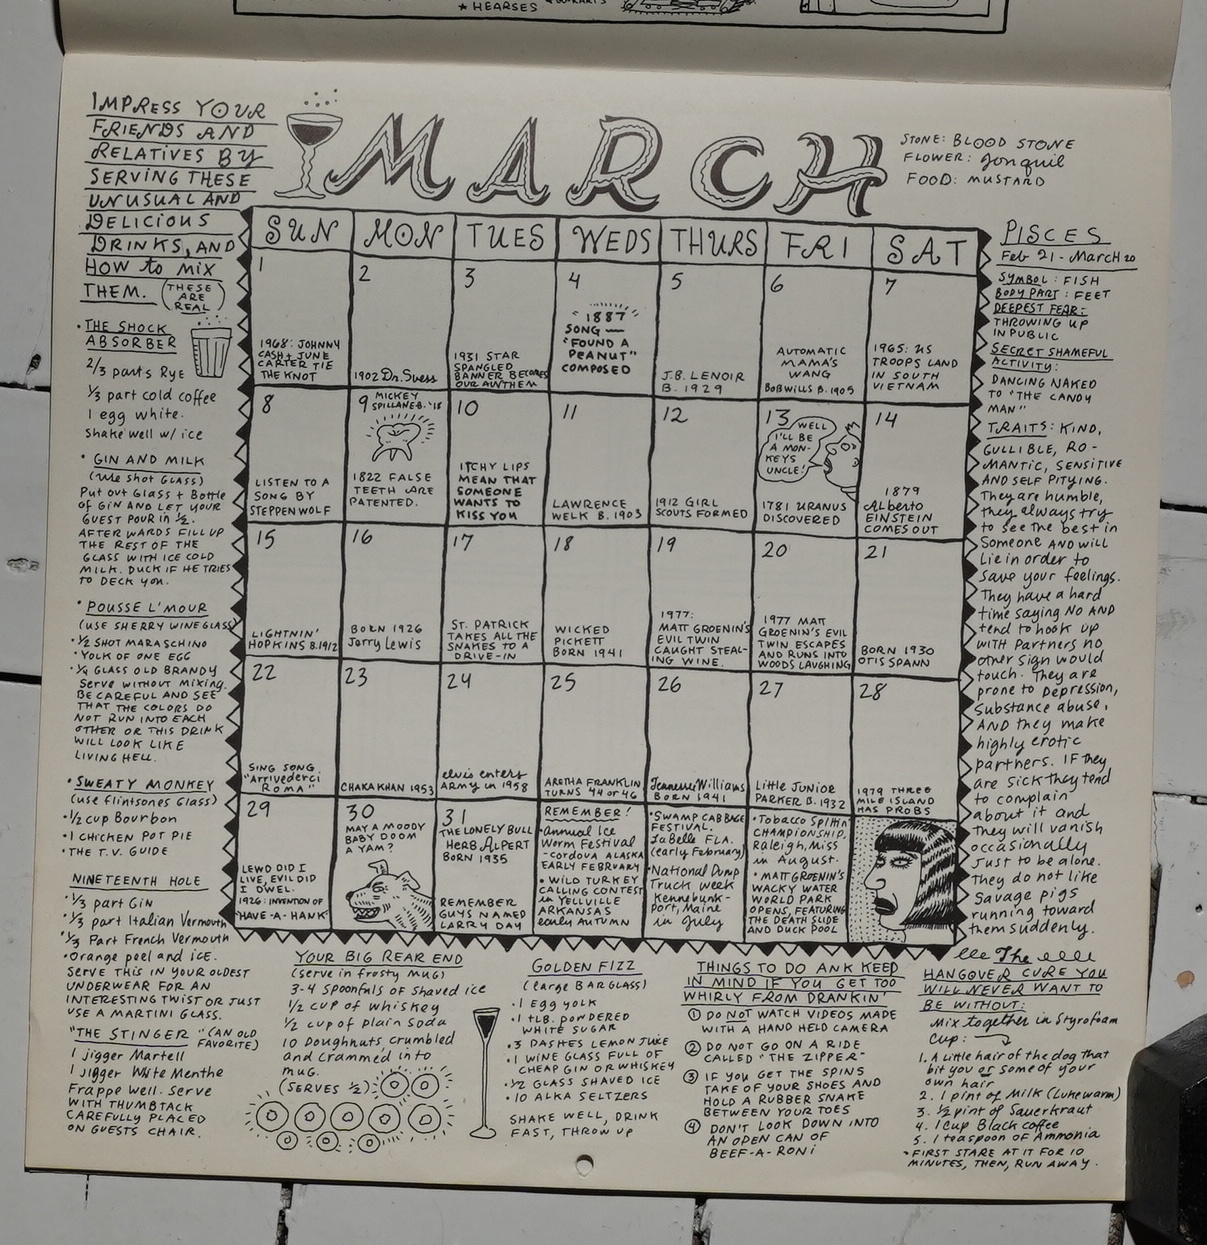 ★ HEARSES
IMPRESS YOUR
FRIENDS AND
RELATIVES BY
SERVING THESE
UNUSUAL AND
DELICIOUS
DRINKS, AND
HOW to MIX
THEM. (THESE
ARE
REAL)
MARCH
STONE: BLOOD STONE
FLOWER: Jonquil
FOOD: MUSTARD
• THE SHOCK
ABSORBER
2/3 parts Rye
1/3 part cold coffee
1 egg white.
Shake well w/ ice
• GIN AND MILK
(use shot Glass)
Put out Glass + Bottle
of GIN AND LET YOUR
GUEST POUR in 1/2.
AFTER WARDS FILL UP
THE REST OF THE
GLASS WITH ICE COLD
MILK. DUCK IF HE TRIES
TO DECK you.
• POUSSE L'MOUR
(USE SHERRY WINE GLASS)
• 1/2 SHOT MARASCHINO
• YOLK OF ONE EGG
• 1/4 GLASS OLD BRANDY
Serve without Mixing.
BE CAREFUL AND SEE
THAT THE COLORS DO
NOT RUN INTO EACH
OTHER OR THIS DRINK
WILL LOOK LIKE
LIVING HELL.
• SWEATY MONKEY
(use flintsones Glass)
• 1/2 cup Bourbon
• 1 CHICKEN POT PIE
• THE T.V. GUIDE
NINETEENTH HOLE
• 1/3 part Gin
• 1/3 part Italian Vermouth
• 1/3 Part French Vermouth
• Orange peel and ice.
SERVE THIS IN YOUR OLDEST
UNDERWEAR FOR AN
INTERESTING TWIST OR JUST
USE A MARTINI GLASS.
"THE STINGER" (AN OLD
FAVORITE)
1 jigger Martell
1 Jigger White Menthe
Frappe well. Serve
WITH THUMBTACK
CAREFULLY PLACED
ON GUESTS CHAIR.
SUN MON TUES WEDS THURS FRI SAT
1
1968: JOHNNY
CASH + JUNE
CARTER TIE
THE KNOT
2
1902 Dr. Suess
3
1931 STAR
SPANGLED
BANNER BECOMES
OUR ANTHEM
4
1887
SONG —
"FOUND A
PEANUT"
COMPOSED
5
J.B. LENOIR
B. 1929
6
AUTOMATIC
MAMA'S
WANG
BOB WILLS B. 1905
7
1965: US
TROOPS LAND
IN SOUTH
VIETNAM
8
LISTEN TO A
SONG BY
STEPPENWOLF
9 MICKEY
SPILLANE B. '18
1822 FALSE
TEETH ARE
PATENTED.
10
ITCHY LIPS
MEAN THAT
SOMEONE
WANTS TO
KISS YOU
11
LAWRENCE
WELK B. 1903
12
1912 GIRL
SCOUTS FORMED
13 WELL
I'LL BE
A MON-
KEYS
UNCLE!
1781 URANUS
DISCOVERED
14
1879
Alberto
EINSTEIN
COMES OUT
15
LIGHTNIN'
HOPKINS B. 1912
16
BORN 1926
Jerry Lewis
17
ST. PATRICK
TAKES ALL THE
SNAKES TO A
DRIVE-IN
18
WICKED
PICKETT
BORN 1941
19
1977:
MATT GROENIN'S
EVIL TWIN
CAUGHT STEAL-
ING WINE.
20
1977 MATT
GROENIN'S EVIL
TWIN ESCAPES
AND RUNS INTO
WOODS LAUGHING
21
BORN 1930
OTIS SPANN
22
SING SONG,
"Arrivederci
ROMA"
23
CHAKA KHAN 1953
24
elvis enters
ARMY in 1958
25
ARETHA FRANKLIN
TURNS '44 or 46
26
Jeannie Williams
BORN 1941
27
Little Junior
PARKER B. 1932
28
1979 THREE
MILE ISLAND
HAS PROBS
29
LEWD DID I
LIVE, EVIL DID
I DWEL.
1926: INVENTION OF
"HAVE-A-HANK"
30
MAY A MOODY
BABY DOOM
A YAM?
31
THE LONELY BULL
HERB ALPERT
BORN 1935
REMEMBER
GUYS NAMED
LARRY DAY
REMEMBER!
• Annual Ice
Worm Festival
- CORDOVA ALASKA
EARLY FEBRUARY
• WILD TURKEY
CALLING CONTEST
in YELLVILLE
ARKANSAS
early AUTUMN
• SWAMP CABBAGE
FESTIVAL.
LaBelle FLA.
(early February)
• National Dump
Truck week
Kennebunk-
port, Maine
in July
• Tobacco Spittin'
CHAMPIONSHIP,
Raleigh, Miss
in August.
• MATT GROENIN'S
WACKY WATER
WORLD PARK
OPENS, FEATURING
THE DEATH SLIDE
AND DUCK POOL
PISCES
Feb 21 - March 20
SYMBOL: FISH
BODY PART: FEET
DEEPEST FEAR:
THROWING UP
IN PUBLIC
SECRET SHAMEFUL
ACTIVITY:
DANCING NAKED
TO "THE CANDY
MAN"
TRAITS: KIND,
GULLIBLE, RO-
MANTIC, SENSITIVE
AND SELF PITYING.
They are humble,
they always try
to see the best in
Someone AND WILL
Lie in order to
save your feelings.
They have a hard
time saying NO AND
tend to hook up
WITH PARTNERS NO
other sign would
touch. They are
prone to depression,
Substance abuse,
AND they make
highly erotic
partners. IF they
are sick they tend
to complain
about it and
they will vanish
occasionally
Just to be alone.
They do not like
Savage pigs
running toward
them suddenly.
YOUR BIG REAR END
(serve in frosty MUG)
3-4 Spoonfuls of Shaved ice
1/2 cup of whiskey
1/2 cup of plain Soda
10 Doughnuts crumbled
and crammed into
mug.
(SERVES 1/2)
GOLDEN FIZZ
(large BAR GLASS)
• 1 Egg yolk
• 1 TLB. POWDERED
WHITE SUGAR
• 3 DASHES LEMON JUICE
• 1 WINE GLASS FULL OF
CHEAP GIN OR WHISKEY
• 1/2 GLASS SHAVED ICE
• 10 ALKA SELTZERS
SHAKE WELL, DRINK
FAST, THROW UP
THINGS TO DO ANK KEED
IN MIND IF YOU GET TOO
WHIRLY FROM DRANKIN'
① DO NOT WATCH VIDEOS MADE
WITH A HAND HELD CAMERA
② DO NOT GO ON A RIDE
CALLED "THE ZIPPER"
③ IF YOU GET THE SPINS
TAKE OF YOUR SHOES AND
HOLD A RUBBER SNAKE
BETWEEN YOUR TOES
④ DON'T LOOK DOWN INTO
AN OPEN CAN OF
BEEF-A-RONI
The
HANGOVER CURE YOU
WILL NEVER WANT TO
BE WITHOUT:
Mix together in Styrofoam
Cup:
1. A little hair of the dog that
bit you or some of your
own hair
2. 1 pint of Milk (Lukewarm)
3. 1/2 pint of Sauerkraut
4. 1 Cup Black coffee
5. 1 teaspoon of Ammonia
• FIRST STARE AT IT FOR 10
MINUTES, THEN, RUN AWAY.